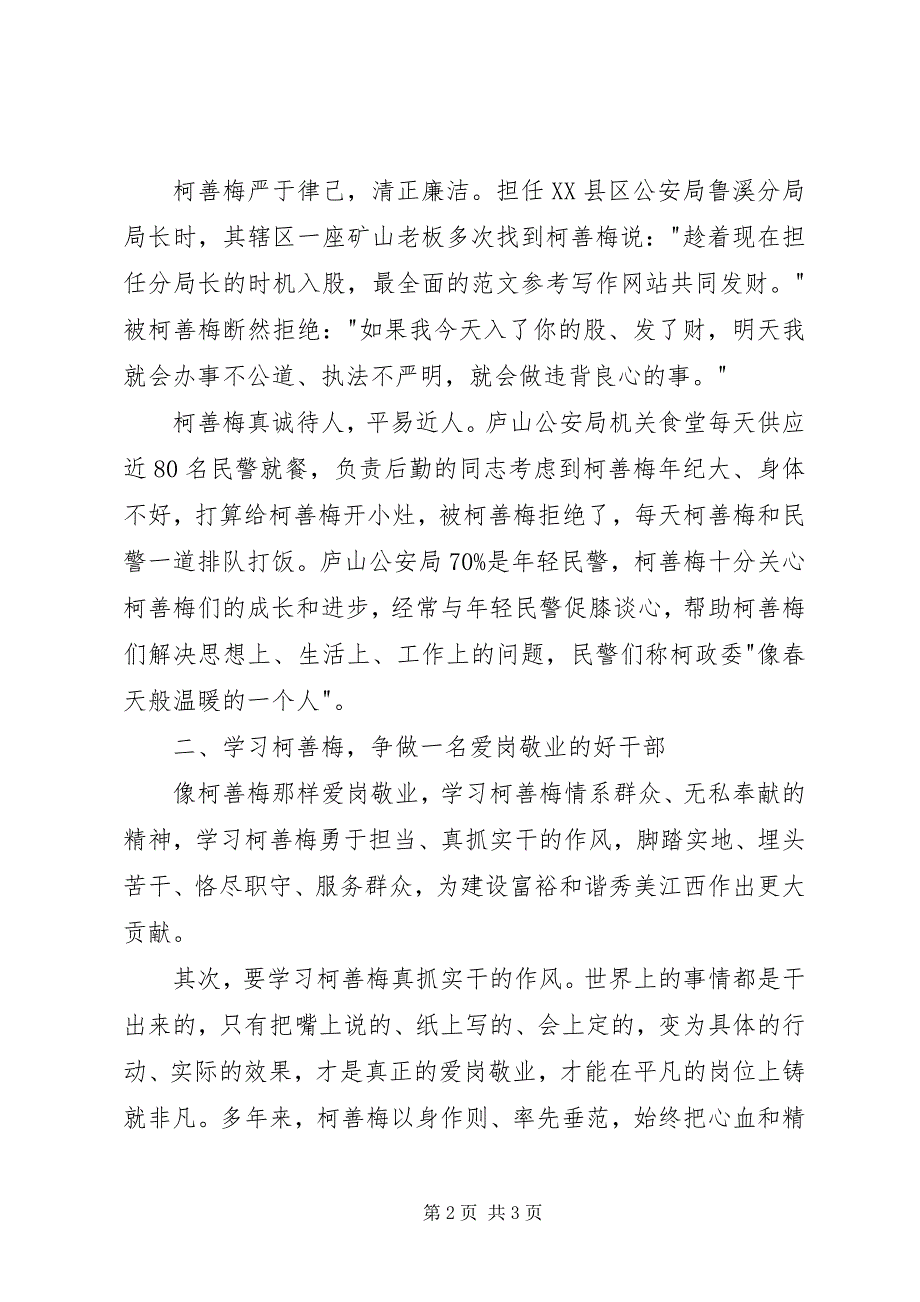 柯善梅严于律己，清正廉洁。担任 XX 县区公安局鲁溪分局
局长时，其辖区一座矿山老板多次找到柯善梅说："趁着现在担
任分局长的时机入股，最全面的范文参考写作网站共同发财。"
被柯善梅断然拒绝："如果我今天入了你的股、发了财，明天我
就会办事不公道、执法不严明，就会做违背良心的事。"
柯善梅真诚待人，平易近人。庐山公安局机关食堂每天供应
近 80 名民警就餐，负责后勤的同志考虑到柯善梅年纪大、身体
不好，打算给柯善梅开小灶，被柯善梅拒绝了，每天柯善梅和民
警一道排队打饭。庐山公安局 70%是年轻民警，柯善梅十分关心
柯善梅们的成长和进步，经常与年轻民警促膝谈心，帮助柯善梅
们解决思想上、生活上、工作上的问题，民警们称柯政委"像春
天般温暖的一个人"。
二、学习柯善梅，争做一名爱岗敬业的好干部
像柯善梅那样爱岗敬业，学习柯善梅情系群众、无私奉献的
精神，学习柯善梅勇于担当、真抓实干的作风，脚踏实地、埋头
苦干、恪尽职守、服务群众，为建设富裕和谐秀美江西作出更大
贡献。
其次，要学习柯善梅真抓实干的作风。世界上的事情都是干
出来的，只有把嘴上说的、纸上写的、会上定的，变为具体的行
动、实际的效果，才是真正的爱岗敬业，才能在平凡的岗位上铸
就非凡。多年来，柯善梅以身作则、率先垂范，始终把心血和精
第 2 页 共 3 页